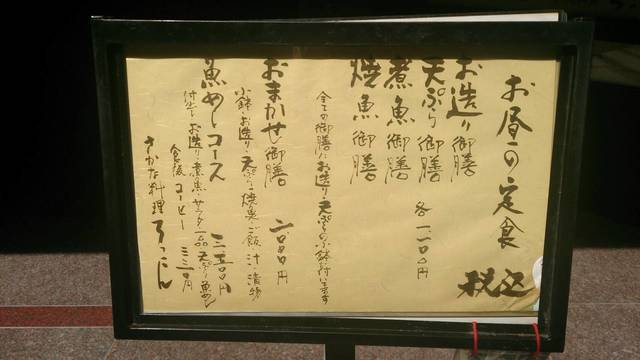 お昼の定食
税込
お造り御膳
天ぷら御膳
煮魚御膳
焼魚御膳
各一一〇〇円
全ての御膳にお造り・天ぷらの小鉢が付いてます
おまかせ御膳 二〇〇〇円
小鉢・お造り・天ぷら・焼魚・ご飯・汁・漬物
魚めしコース 三三〇〇円
付出し・お造り・煮魚・サラダ一品・天ぷら・魚めし
食後 コーヒー 三三〇円
さかな料理